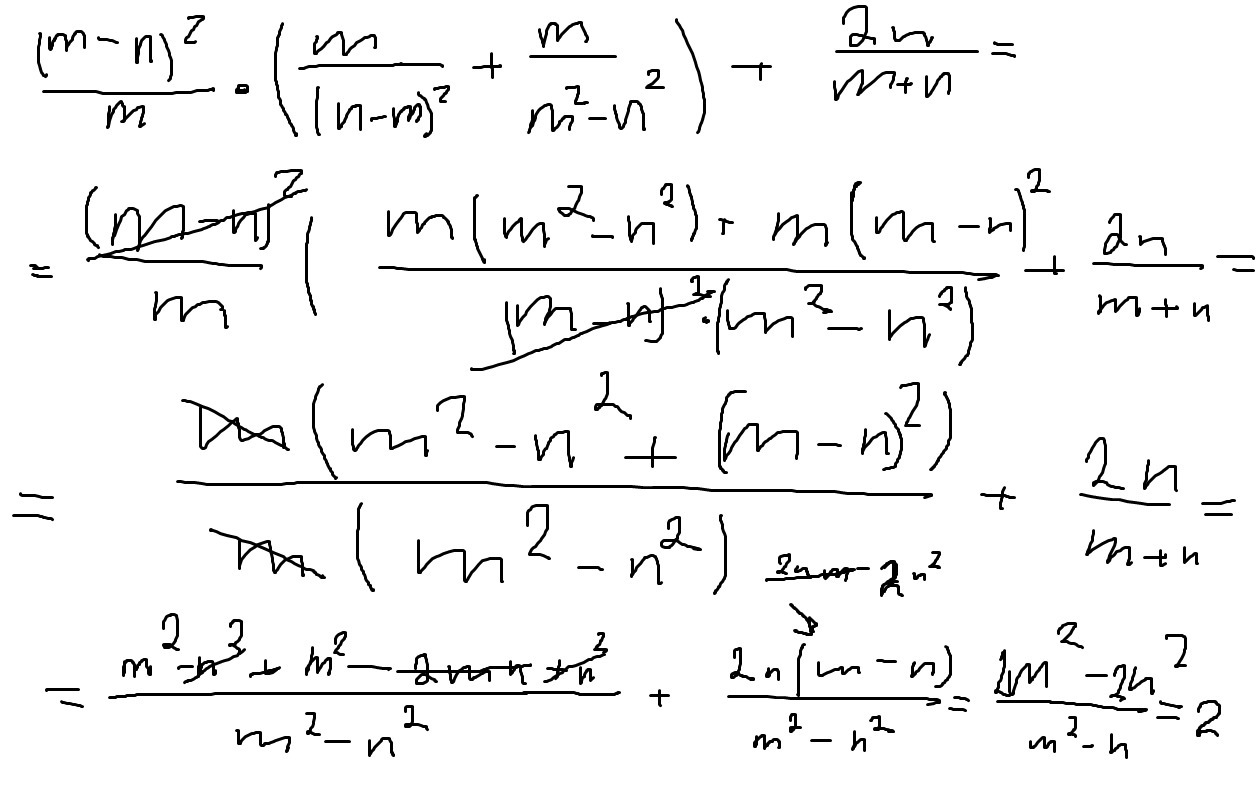 (m-n)²/m · (m/(n-m)² + m/(m²-n²)) + 2n/(m+n) =
= (m-n)²/m ( (m(m²-n²) + m(m-n)²)/((m-n)²·(m²-n²)) + 2n/(m+n) =
= m(m²-n²+(m-n)²)/(m(m²-n²)) + 2n/(m+n) =
2nm-2n²
= (m²-n²+m²-2mn+n²)/(m²-n²) + 2n(m-n)/(m²-n²) = (2m²-2n²)/(m²-n) = 2